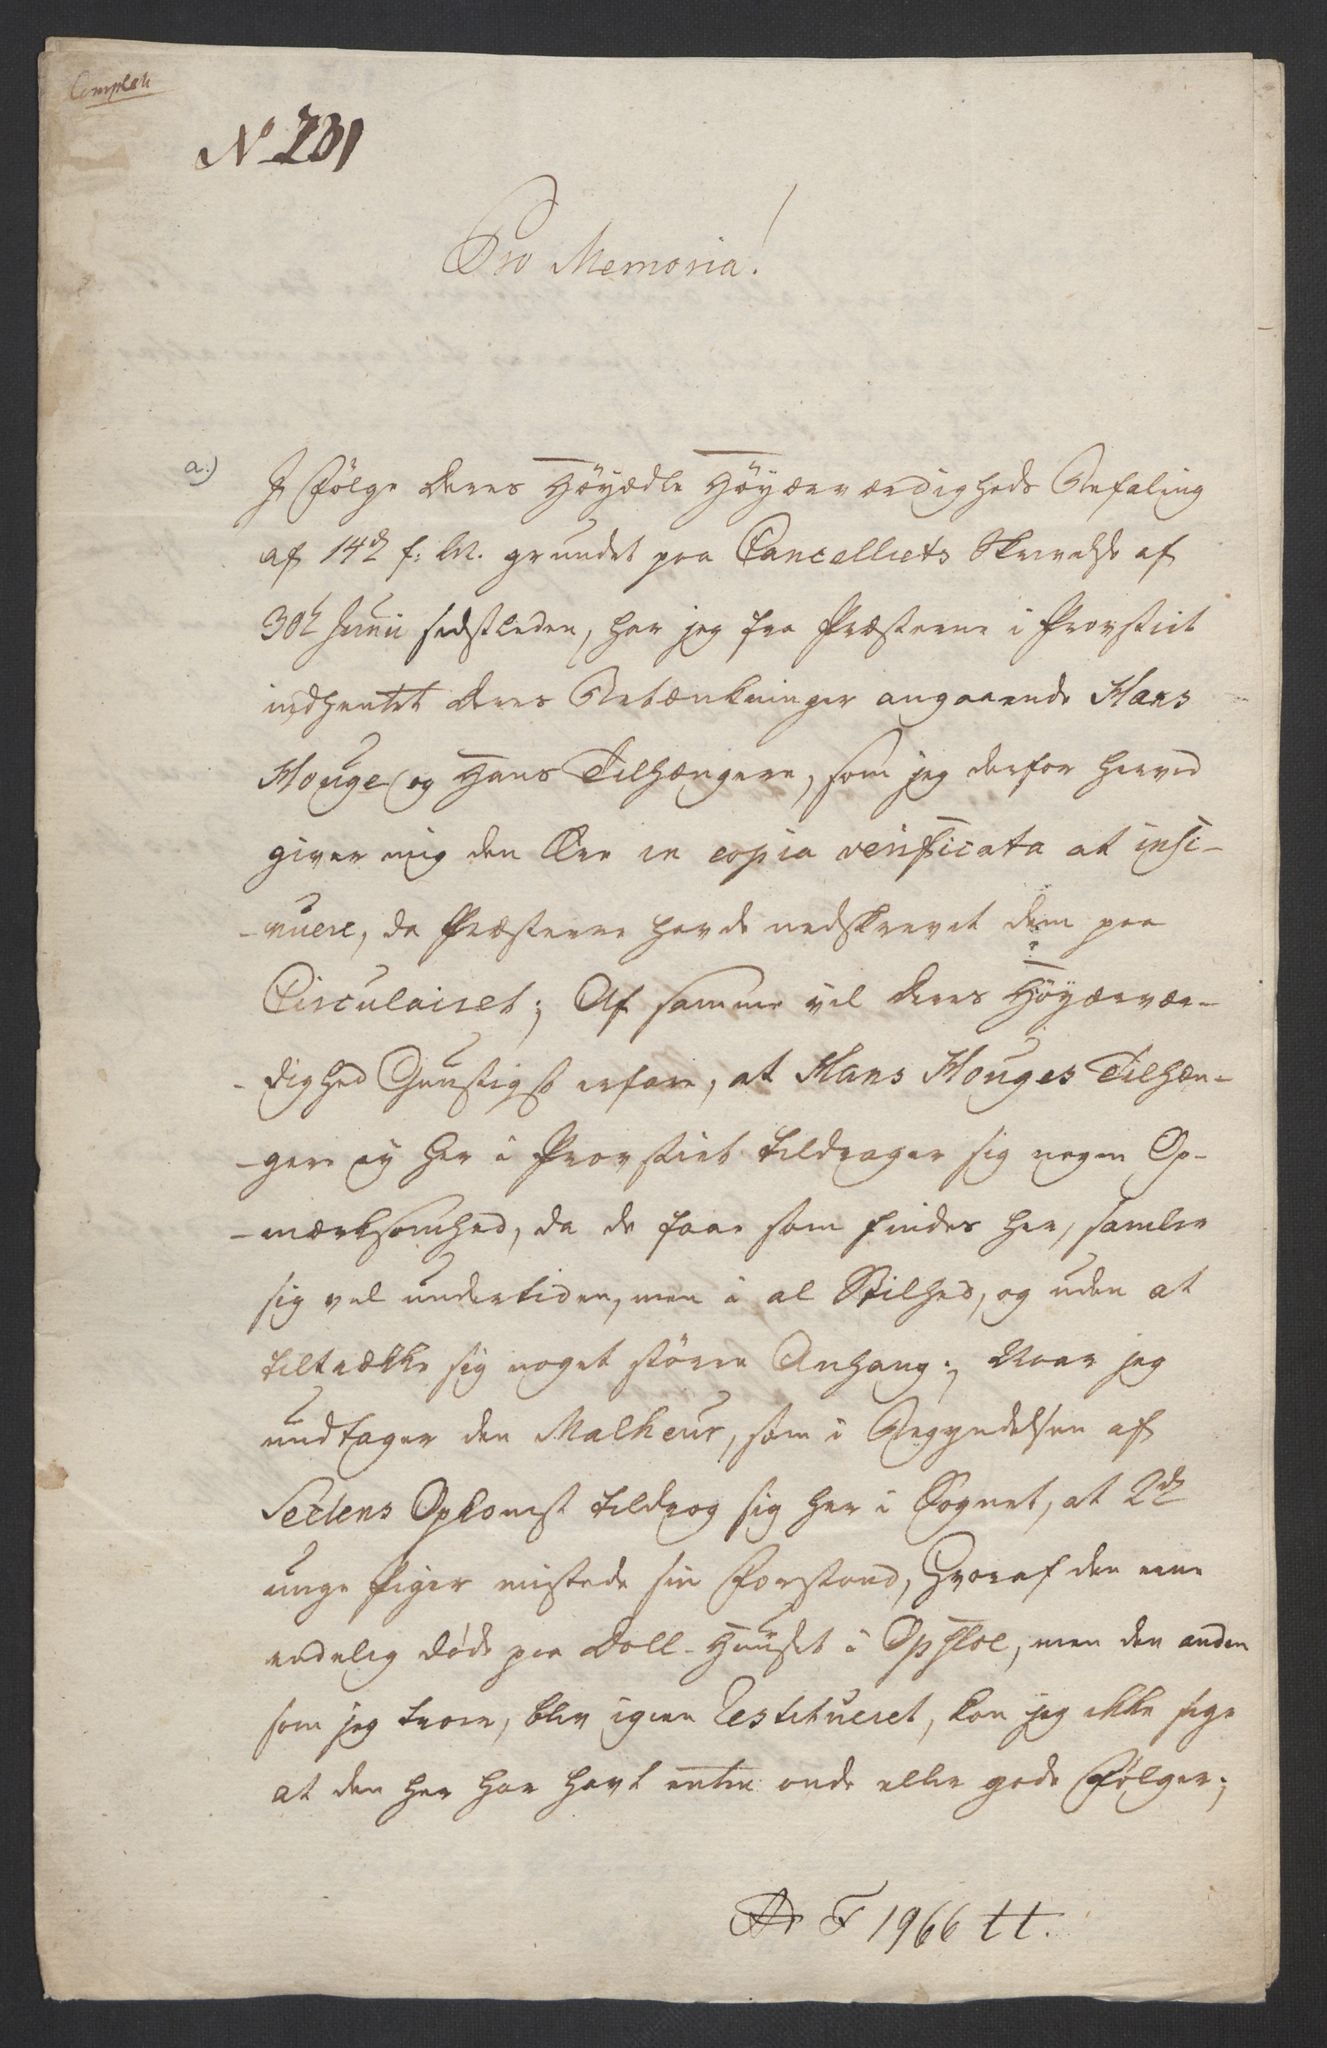 Complett
No 231
Pro Memoria!
a.) I Følge Deres Høyædle Høyærværdigheds Befaling
af 14de f: M. grundet paa Cancelliets Skrivelse af
30te Junii sidstleden, har jeg fra Præsterne i Provstiet
indhentet deres Betænkninger angaaende Hans
Houge og Hans Tilhængere, som jeg derfor herved
giver mig den Ære in copia verificata at insi-
-nuere, da Præsterne havde nedskrevet dem paa
Circulairet; Af samme vil Deres Høyærvær-
-dighed Gunstigst erfare, at Hans Houges Tilhæn-
-gere ey her i Provstiet tildrager sig nogen Op-
-mærksomhed, da de faae som findes her, samler
sig vel undertiden, men i al Stilhed, og uden at
tiltrække sig noget større Anhang; Naar jeg
undtager den Malheur, som i Begyndelsen af
Sectens Opkomst tildrog sig her i Sognet, at 2de
unge Piger mistede sin Forstand, hvoraf den eene
endelig døde paa Doll-Huuset i Opsloe, men den anden
som jeg troer, blev igien restitueret, kan jeg ikke sige
at den her har havt enten onde eller gode Følger;
F 1966 tt.